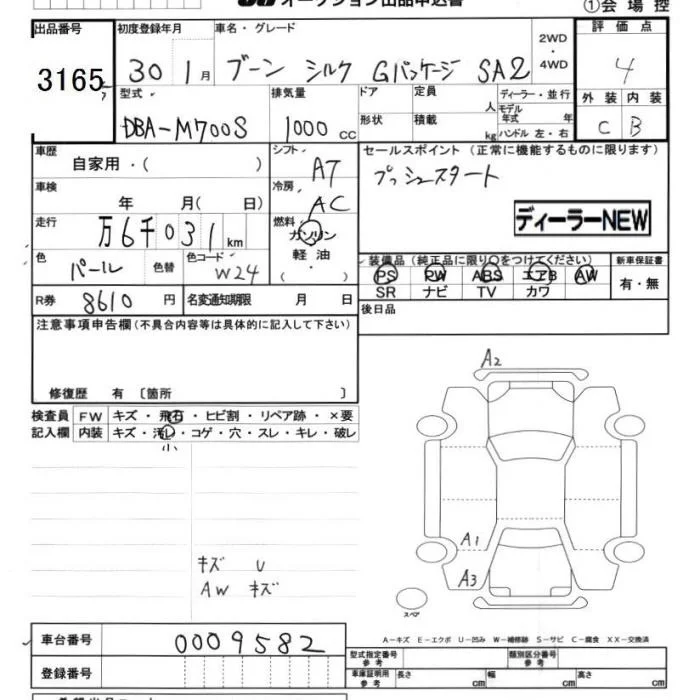 オークション出品申込書
①会場控
出品番号 3165
初度登録年月 30 1月
車名・グレード ブーン シルク Gパッケージ SA2
2WD・4WD
評価点 4
外装 C 内装 B
型式 DBA-M700S
排気量 1000 cc
ドア 形状
定員 人 積載 kg
ディーラー・並行
モデル年式 年
ハンドル 左・右
車歴 自家用・( )
シフト AT
セールスポイント (正常に機能するものに限ります)
プッシュスタート
車検 年 月( 日)
冷房 AC
ディーラーNEW
走行 万6千031km
燃料 ガソリン 軽油・( )
色 パール 色替 色コード W24
装備品 (純正品に限り○をつけてください)
PS PW ABS エアB AW
SR ナビ TV カワ
新車保証書 有・無
R券 8610円 名変通知期限 月 日
後日品
注意事項申告欄(不具合内容等は具体的に記入して下さい)
修復歴 有 〔箇所 〕
検査員記入欄
FW キズ・飛石・ヒビ割・リペア跡・×要
内装 キズ・汚レ・コゲ・穴・スレ・キレ・破レ
小
キズ U
AW キズ
A2
A1
A3
スペア
A-キズ E-エクボ U-凹み W-補修跡 S-サビ C-腐食 XX-交換済
車台番号 0009582
登録番号
型式指定番号 参考 類別区分番号 参考
車庫証明用 参考 長さ cm 幅 cm 高さ cm